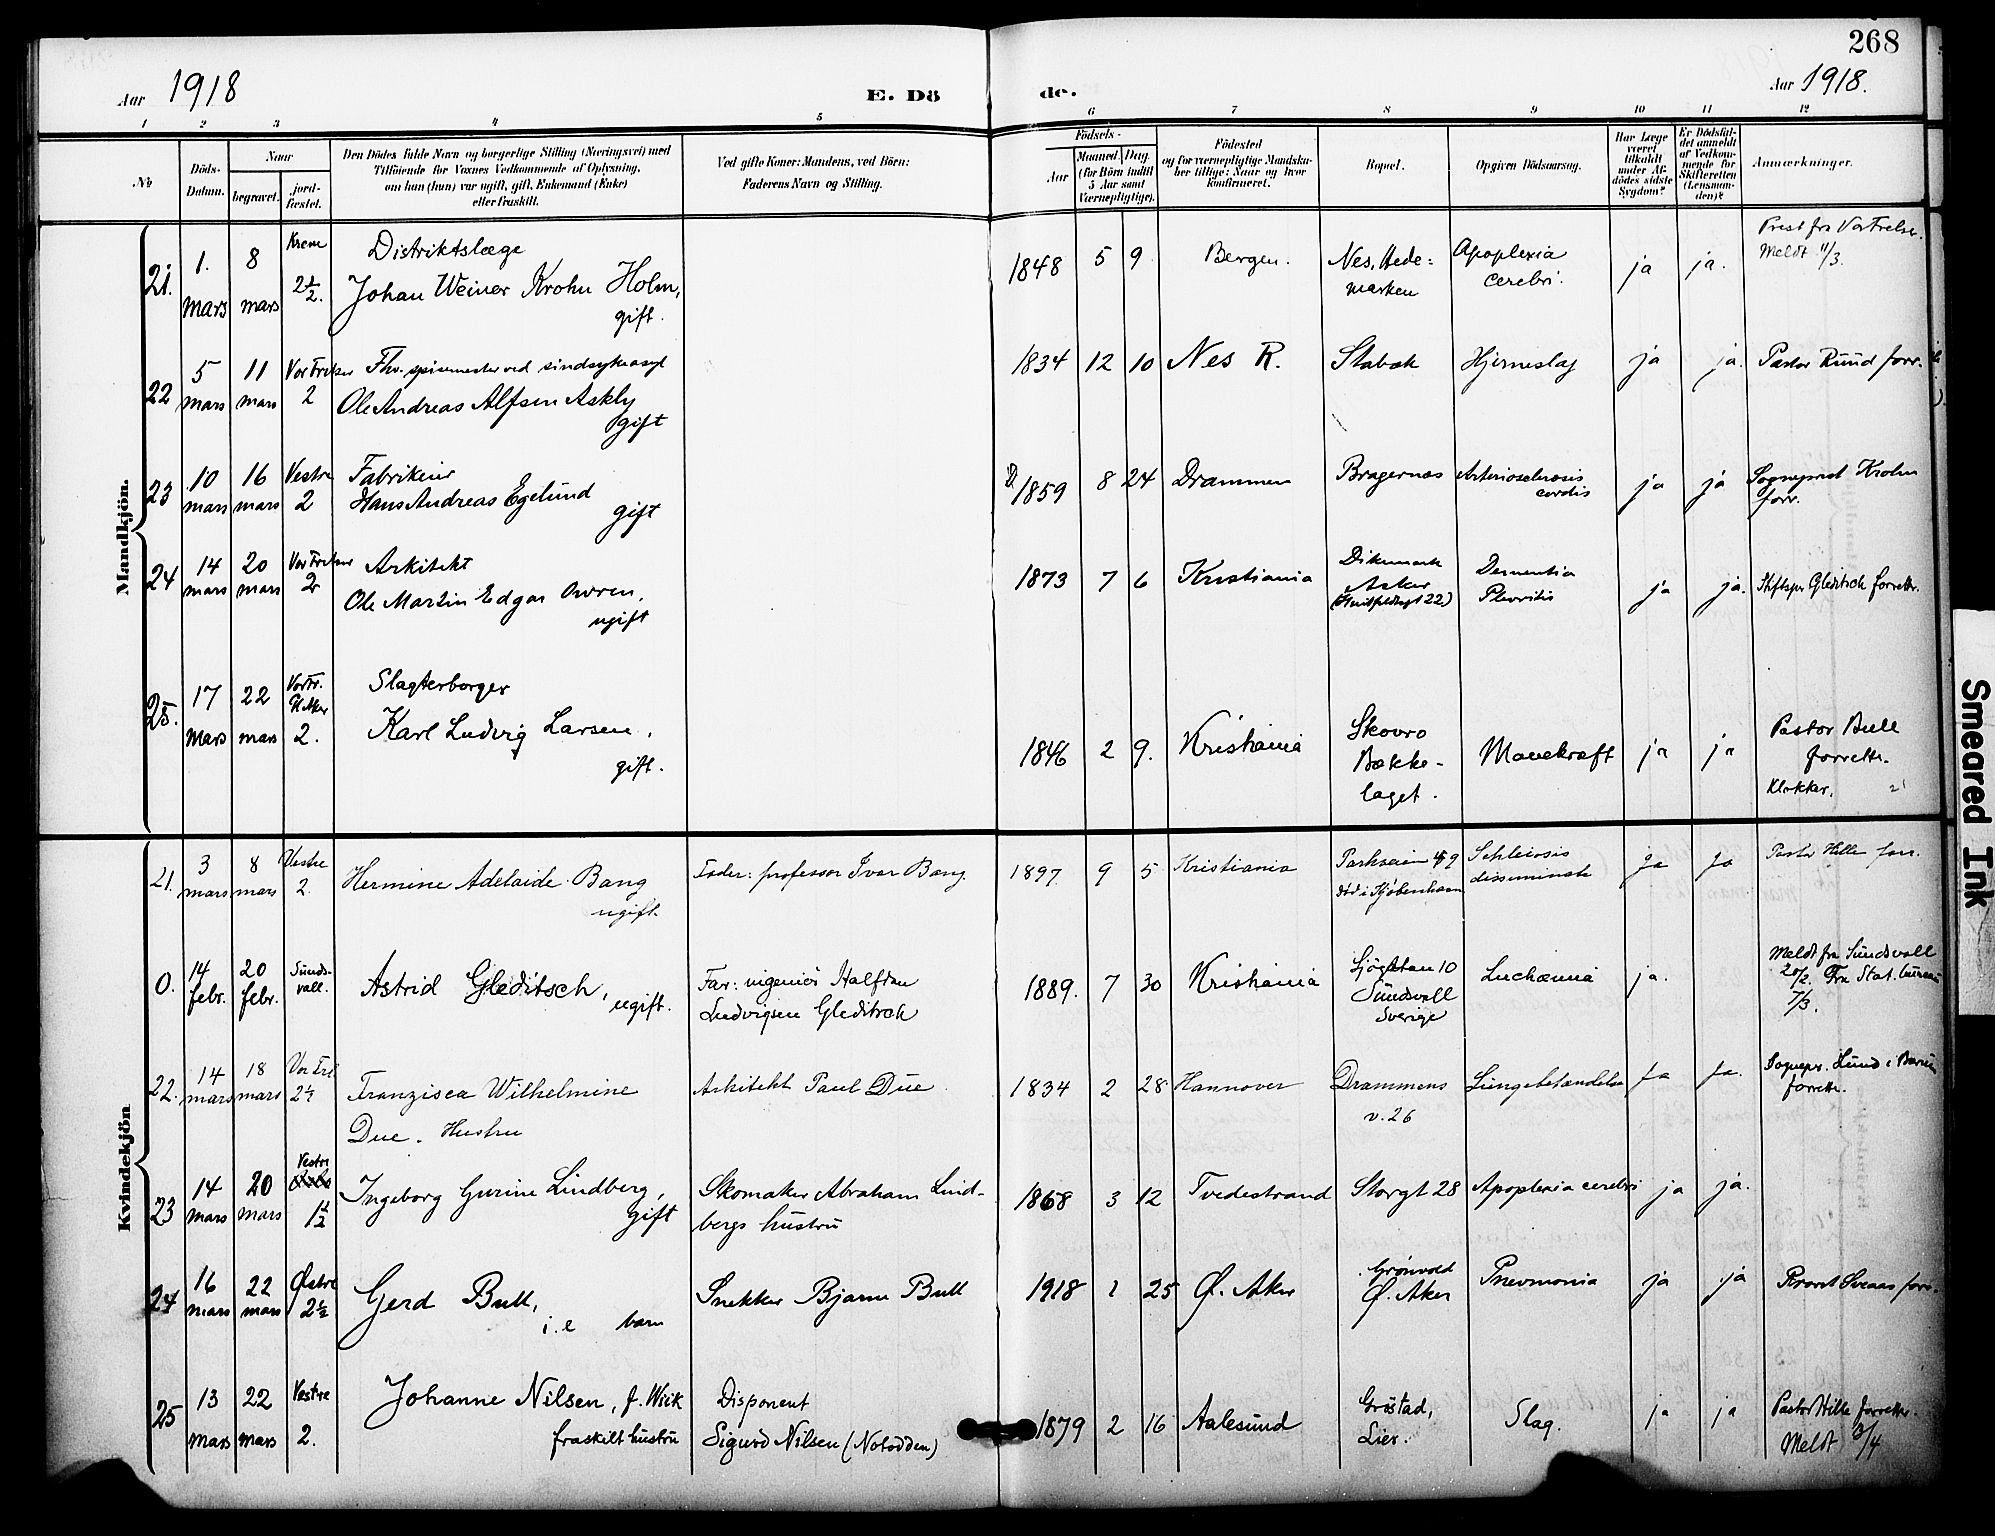 268
Aar 1918
E. Dö
de.
Aar 1918.
1 2 3 4 5 6 7 8 9 10 11 12
No
Döds-
Datum.
Naar
begravet.
jord-
fæstet.
Den Dödes fulde Navn og borgerlige Stilling (Næringsvei) med
Tilföiende for Voxnes Vedkommende af Oplysning,
om han (hun) var ugift, gift, Enkemand (Enke)
eller fraskilt.
Ved gifte Koner: Mandens, ved Börn:
Faderens Navn og Stilling.
Födsels-
Aar
Maaned. Dag.
(for Börn indtil
5 Aar samt
Værnepligtige).
Födested
og for værnepligtige Mandska-
ber tillige: Naar og hvor
konfirmeret.
Bopæl.
Opgiven Dödsaarsag.
Har Læge
været
tilkaldt
under Af-
dödes sidste
Sygdom?
Er Dödsfal-
det anmeldt
af Vedkom-
mende for
Skifteretten
(Lensman-
den)?
Anmærkninger.
Mandkjön.
21. 1. mars 8 mars Krem 2½.
Distriktslæge
Johan Weiner Krohn Holm,
gift.
1848 5 9 Bergen.
Nes, Hede=
marken
Apoplexia
cerebri.
ja ja.
Prest fra Vor Frelser.
Meldt 11/3.
22 5 mars 11 mars Vor Frelser 2
Fhv. spisemester ved sindsykeasyl
Ole Andreas Alfsen Askly
gift
1834 12 10 Nes R. Stabæk Hjerneslag ja ja.
Pastor Ruud forr.
23 10 mars 16 mars Vestre 2
Fabrikeier
Hans Andreas Egelund
gift
1859 8 24 Drammen Bragernæs
Arteriosclerosis
cordis
ja ja
Sogneprest Krohn
forr.
24 14 mars 20 mars Vor Frelser 2
Arkitekt
Ole Martin Edgar Owren,
ugift
1873 7 6 Kristiania
Dikemark
Asker
(Huitfeldtsgt 22)
Dementia
Plevritis
ja ja.
Stiftspr Gleditsch forrettr.
25. 17 mars 22 mars Vor Fr. 2.
Slagterborger
Karl Ludvig Larsen,
gift.
1846 2 9. Kristiania
Skovro
Bække-
laget.
Mavekræft ja ja
Pastor Bull
forrettr.
Klokker.
Kvindekjön
21. 3 mars 8 mars Vestre 2.
Hermine Adelaide Bang
ugift.
Fader: professor Ivar Bang
1897. 9 5 Kristiania
død i Kjøbenhavn
ja ja
Pastor Hille forr.
0. 14 febr. 20 febr. Sunds-
vall.
Astrid Gleditsch,
ugift.
Far: ingeniør Halfdan
Ludvigsen Gleditsch
1889. 7 30 Kristiania
Sjögatan 10
Sundsvall
Sverige
ja.
Meldt fra Sundsvall
20/2. Fra Stat. bureau
7/3.
22. 14 mars 18 mars Vor Frel 2½
Franzisca Wilhelmine
Due. Hustru
Arkitekt Paul Due
1834 2 28 Hannover
Drammens
v. 26
Lungebetændelse ja ja.
Sognepr. Lund i Bærum
forrettr.
23 14 mars 20 mars Vestre 1½
Ingeborg Gurine Lindberg,
gift
Skomaker Abraham Lind-
bergs hustru
1868 3 12 Tvedestrand Storgt 28 Apoplexia cerebri ja ja.
24 16 mars 22 mars Østre 2½
Gerd Bull,
i. e barn
Snekker Bjarne Bull
1918 1 25 Ø. Aker
Grønvold
Ø. Aker
Pnevmonia ja ja
Provst Sveaas forr.
25 13 mars 22 mars Vestre 2.
Johanne Nilsen, f. Wiik
fraskilt hustru
Disponent
Sigurd Nilsen (Notodden)
1879 2 16 Aalesund
Grøstad,
Lier.
Slag. ja ja
Pastor Hille forrettr.
Meldt 3/4
Smeared Ink